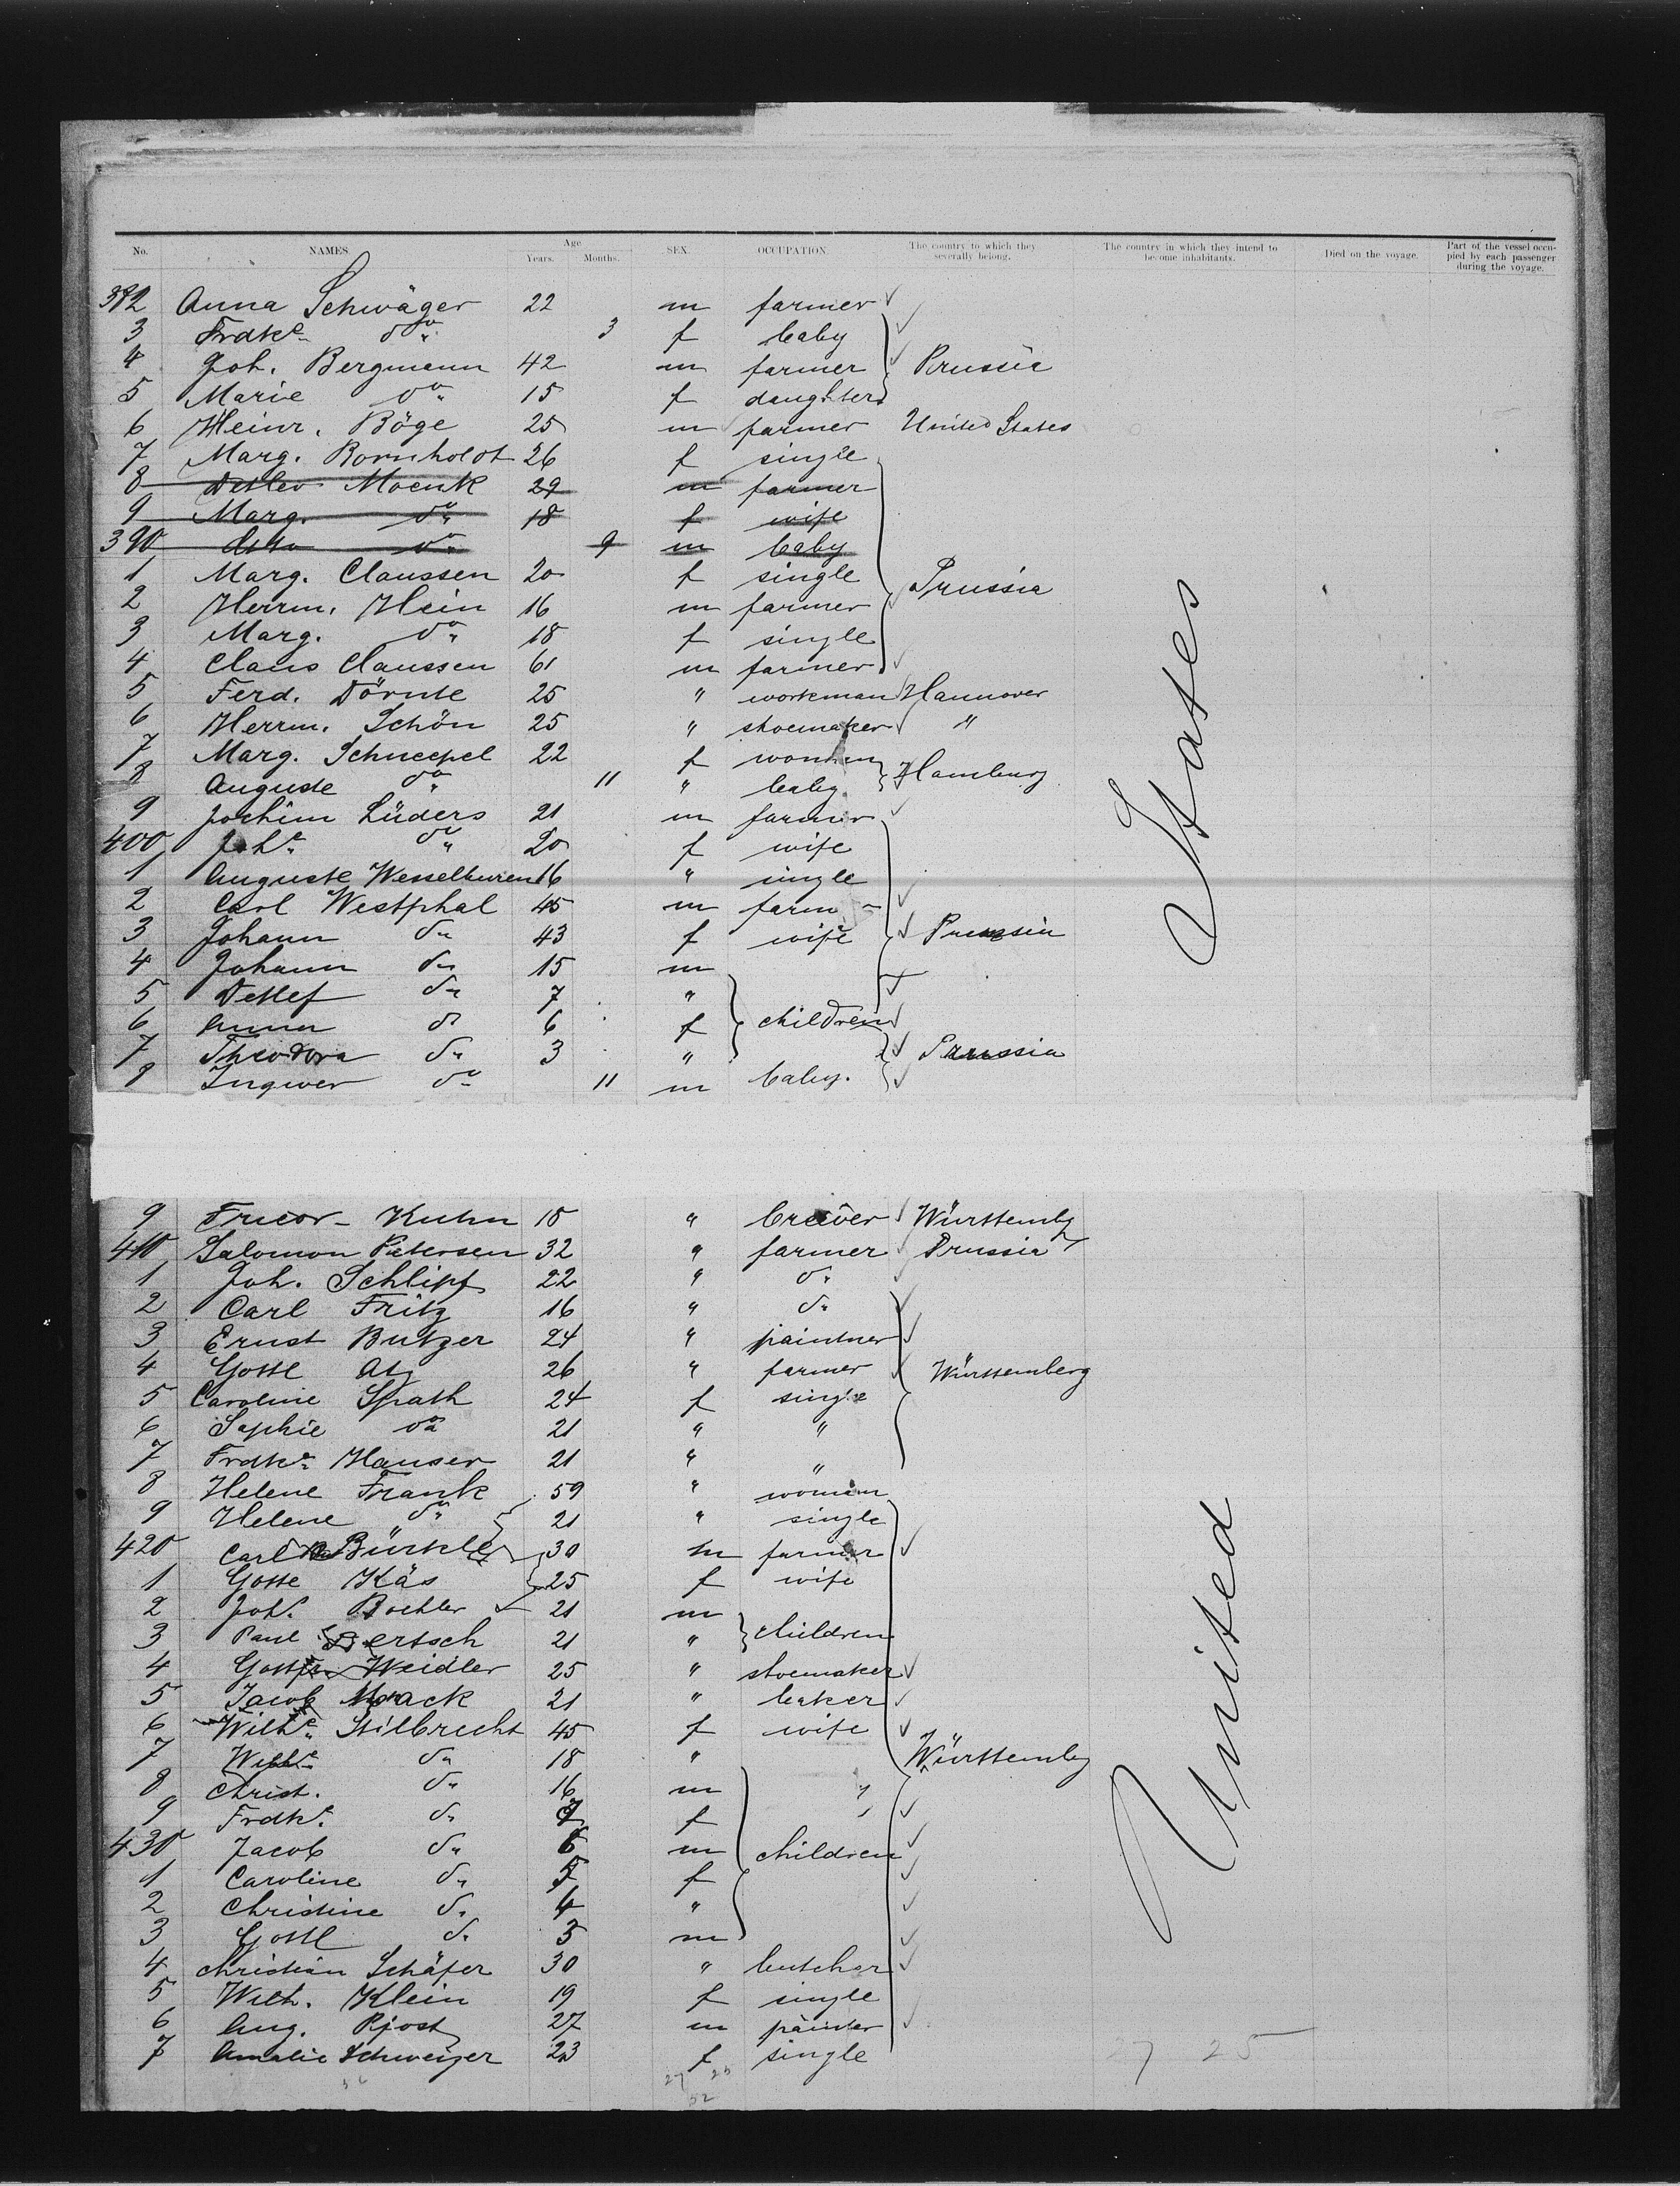 No. NAMES Age Years. Months. SEX. OCCUPATION. The country to which they severally belong. The country in which they intend to become inhabitants. Died on the voyage. Part of the vessel occupied by each passenger during the voyage.
382 Anna Schwäger 22 m farmer
3 Frdke do 3 f baby
4 Joh. Bergmann 42 m farmer Prussia
5 Marie do 15 f daughter
6 Heinr. Böge 25 m farmer United States
7 Marg. Bornholdt 26 f single
8 Detlev Moenk 29 m farmer
9 Marg. do 18 f wife
390 Otto do 9 m baby
1 Marg. Claussen 20 f single
2 Herrm. Hein 16 m farmer Prussia
3 Marg. do 18 f single
4 Claus Claussen 61 m farmer
5 Ferd. Dörnte 25 " workman Hannover
6 Herrm. Schön 25 " shoemaker "
7 Marg. Schneepel 22 f woman
8 Auguste do 11 " baby Hamburg
9 Jochim Lüders 21 m farmer
400 Johe do 20 f wife
1 Auguste Wesselburen 16 " single
2 Carl Westphal 45 m farm
3 Johann do 43 f wife Prussia
4 Johann do 15 m
5 Detlef do 7 "
6 Anna do 6 f children
7 Theodora do 3 " Prussia
8 Ingwer do 11 m baby.
9 Kuhn 18 " brewer Württembg
410 Salomon Petersen 32 " farmer Prussia
1 Joh. Schlipf 22 " do
2 Carl Fritz 16 " do
3 Ernst Butzer 24 " paintner
4 Gottl 26 " farmer Württemberg
5 Caroline Spath 24 f single
6 Sophie do 21 " "
7 Frdke Hauser 21 " "
8 Helene Frank 59 " woman
9 Helene do 21 " single
420 Carl Bürkle 30 m farmer
1 Gotte Käs 25 f wife
2 Joh. Boehler 21 m
3 Paul Bertsch 21 " children
4 Gottfr Weidler 25 " shoemaker
5 Jacob Maack 21 " baker
6 Wilhe Stilbrecht 45 f wife
7 Wilhe do 18 " Württembg
8 Christ. do 16 m "
9 Frdke do 7 f
430 Jacob do 6 m children
1 Caroline do 5 f
2 Christine do 4 "
3 Gottl do 3 m
4 Christian Schäfer 30 " butcher
5 Wilh. Klein 19 f single
6 Aug. 27 m painter
7 Amalie Schweizer 23 f single
United States
27 25
27 25
52